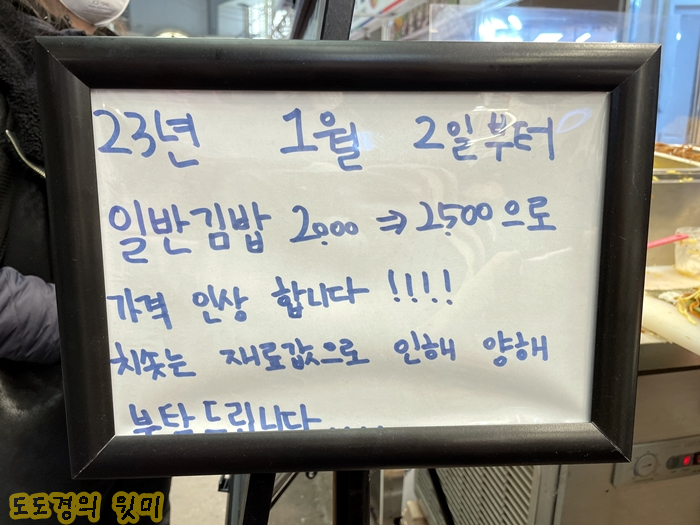 23년 1월 2일부터
일반김밥 2,000 ⇒ 2,500으로
가격 인상 합니다 !!!!
치솟는 재료값으로 인해 양해
부탁드립니다.....
도도경의 윗미